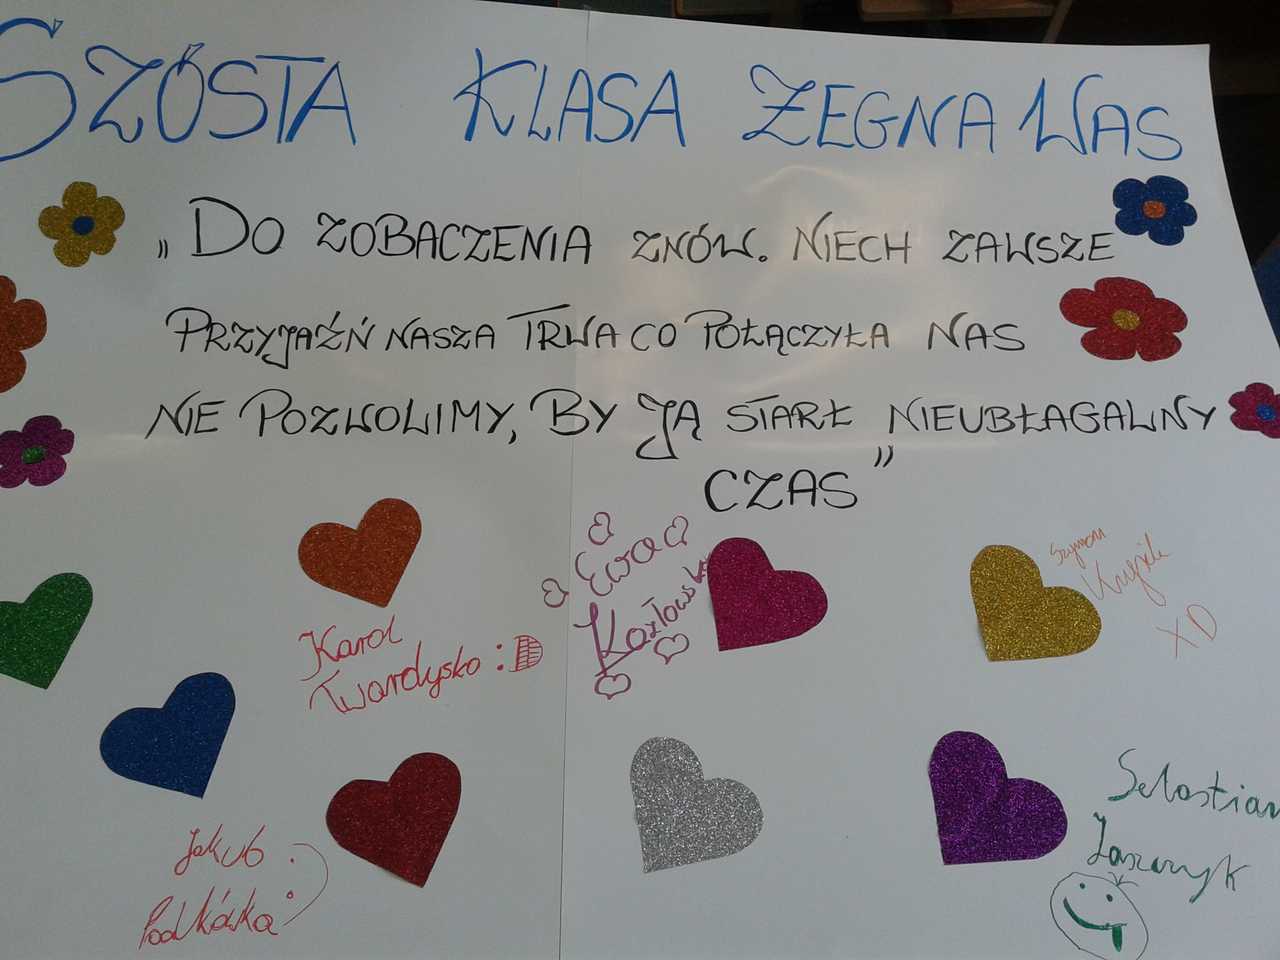 SZÓSTA KLASA ŻEGNA WAS
„DO ZOBACZENIA ZNÓW. NIECH ZAWSZE
PRZYJAŹŃ NASZA TRWA CO POŁĄCZYŁA NAS
NIE POZWOLIMY, BY JĄ STARŁ NIEUBŁAGALNY
CZAS”
Karol
Twardysko :D
Ewa
Kozłowska
Szymon
XD
Jakub
Podkówka :)
Sebastian